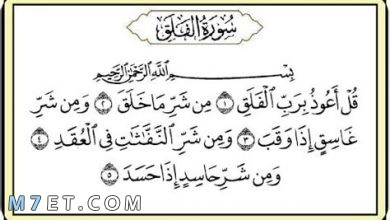 سُورَةُ الفَلَقِ
بِسْمِ اللَّهِ الرَّحْمَٰنِ الرَّحِيمِ
قُلْ أَعُوذُ بِرَبِّ الْفَلَقِ ١ مِن شَرِّ مَا خَلَقَ ٢ وَمِن شَرِّ
غَاسِقٍ إِذَا وَقَبَ ٣ وَمِن شَرِّ النَّفَّاثَاتِ فِي الْعُقَدِ ٤
وَمِن شَرِّ حَاسِدٍ إِذَا حَسَدَ ٥
M7ET.COM